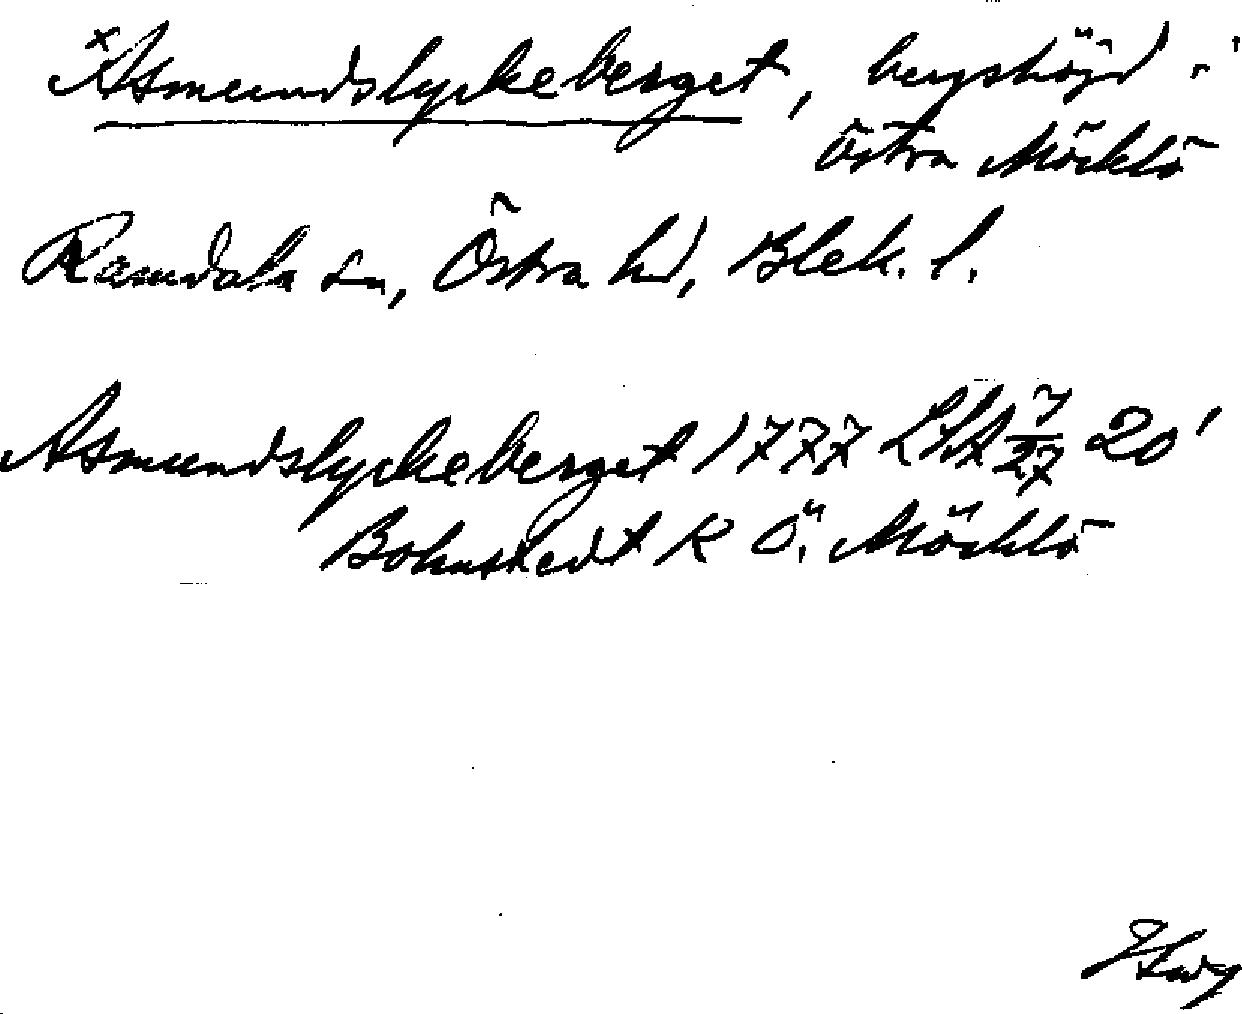 ×Asmundslyckeberget, bergshöjd i
Östra Möcklö
Ramdala sn, Östra hd, Blek. l.
Asmundslyckeberget 1777 LSA 7/27 20'
Bohnstedt K Ö. Möcklö